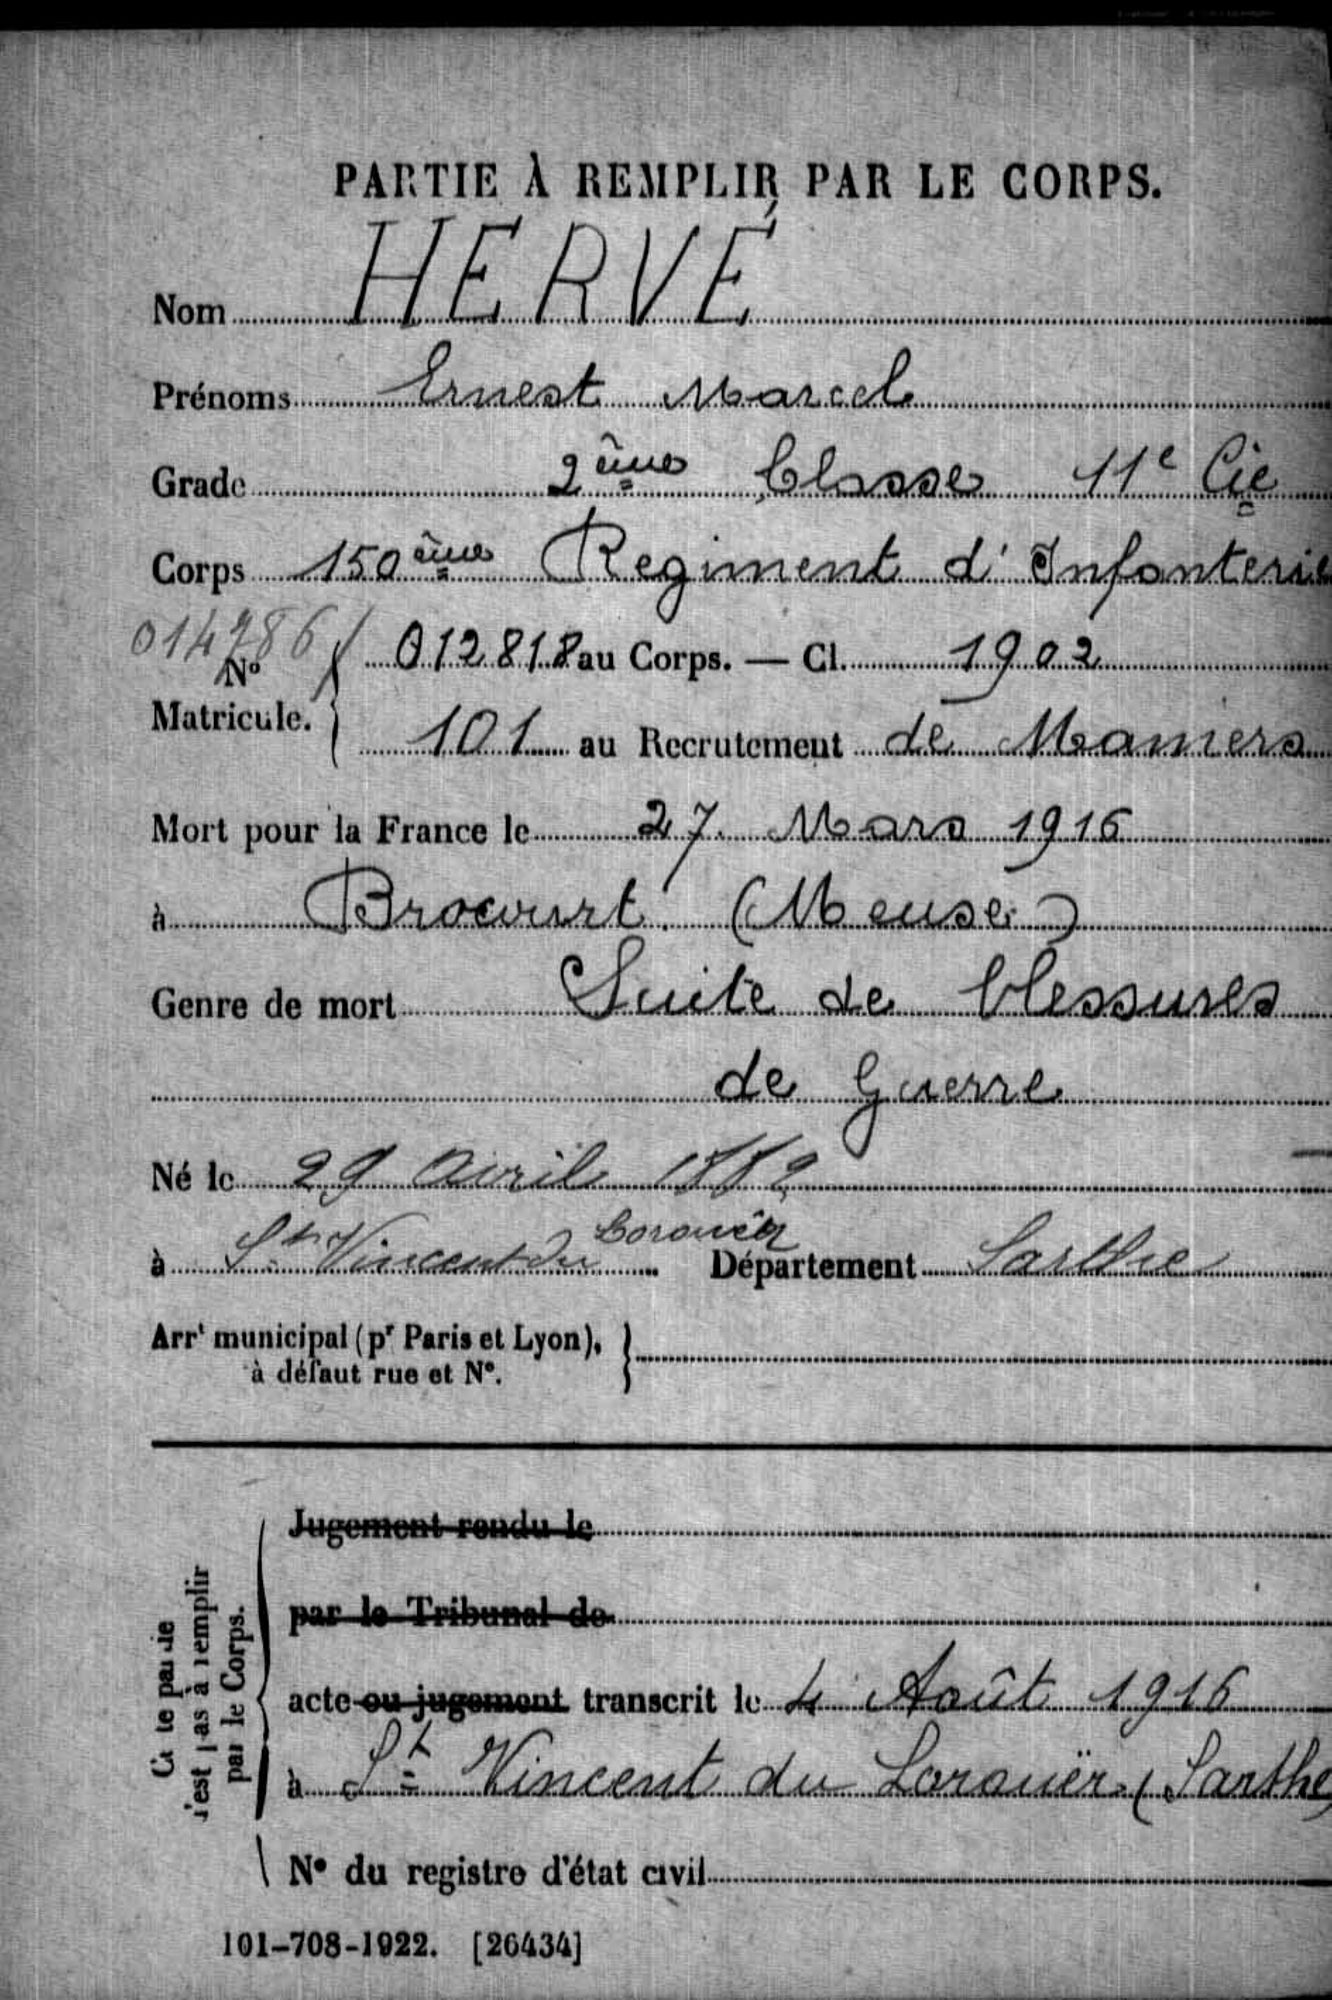 PARTIE À REMPLIR PAR LE CORPS.
Nom HERVÉ
Prénoms Ernest Marcel
Grade 2ème Classe 11e Cie
Corps 150ème Regiment d'Infanterie
014786
N° Matricule. { 012818 au Corps. — Cl. 1902
101 au Recrutement de Mamers
Mort pour la France le 27 Mars 1916
à Brocourt (Meuse)
Genre de mort Suite de blessures
de Guerre
Né le 29 Avril 1882
à St Vincent du Lorouër Département Sarthe
Arrt municipal (pr Paris et Lyon), }
à défaut rue et N°.
Cette partie
n'est pas à remplir
par le Corps.
Jugement rendu le
par le Tribunal de
acte ou jugement transcrit le 4 Août 1916
à St Vincent du Lorouër (Sarthe)
N° du registre d'état civil
101-708-1922. [26434]